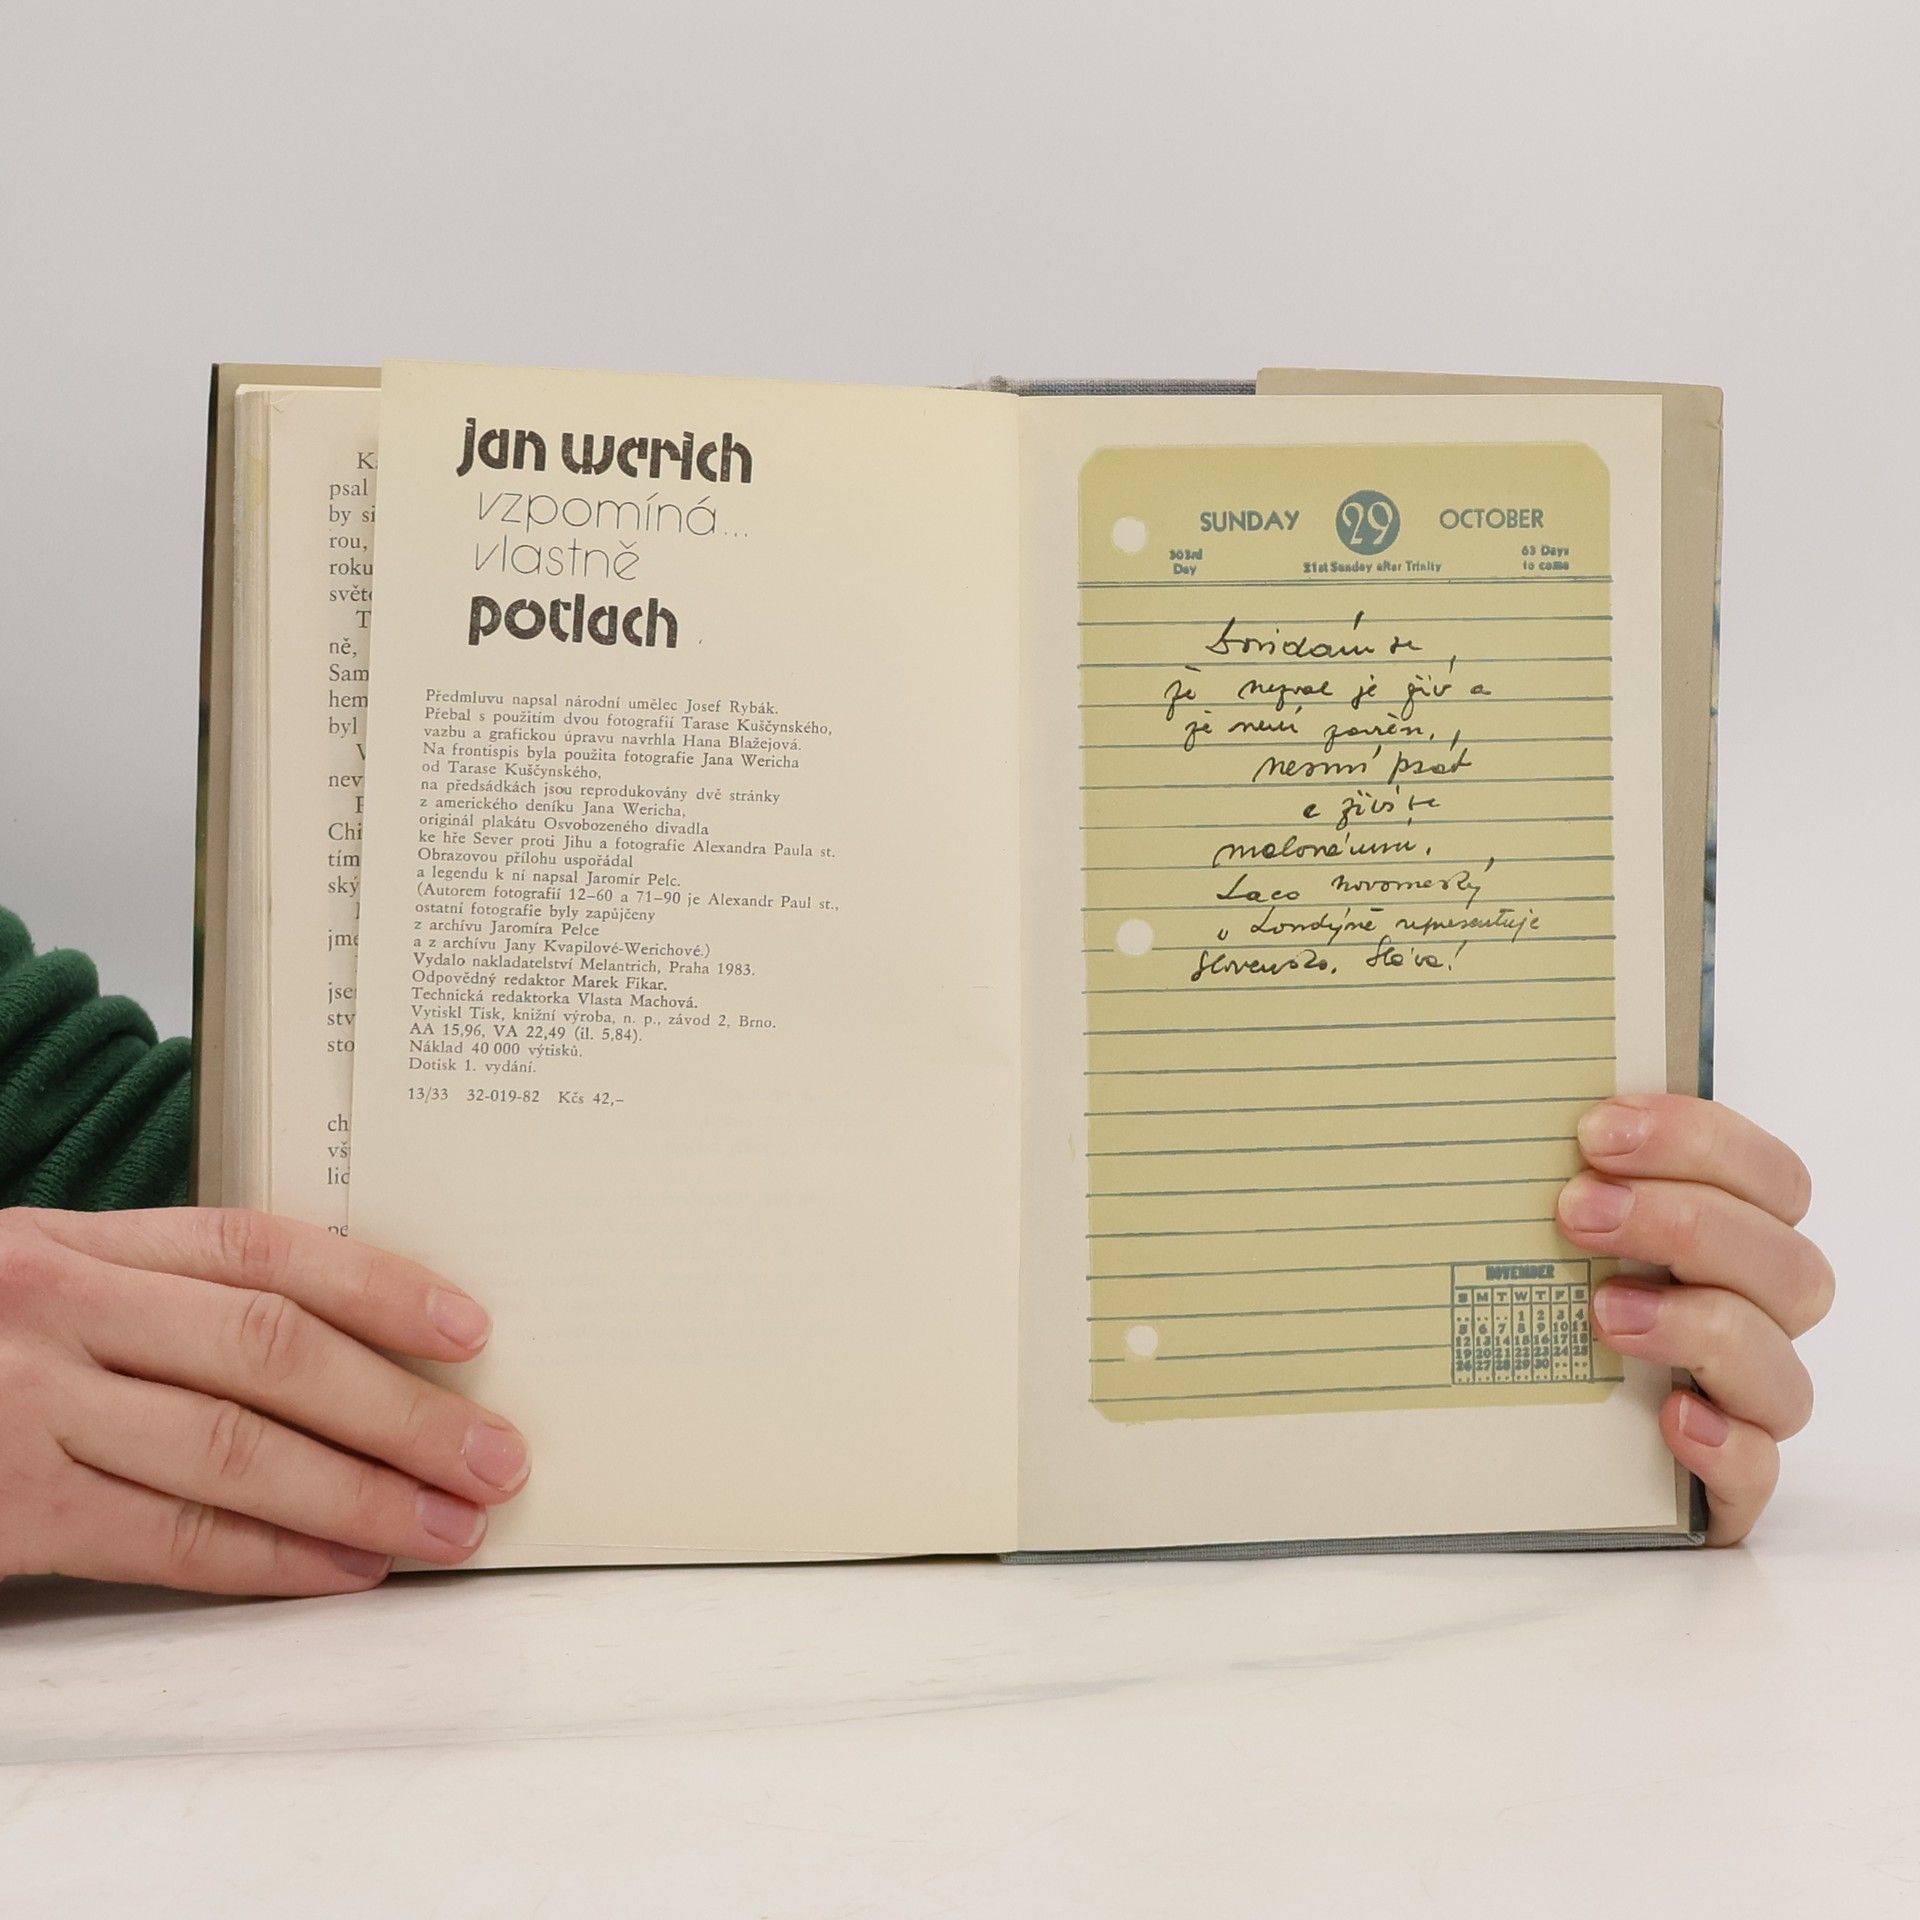 K
psal
by si
rou,
roku
světo
T
ně,
Sam
hem
byl
V
nev
Chi
tím
ský
jme
jse
stv
sto
ch
vš
lid
pe
jan werich
vzpomíná...
vlastně
potlach
Předmluvu napsal národní umělec Josef Rybák.
Přebal s použitím dvou fotografií Tarase Kuščynského,
vazbu a grafickou úpravu navrhla Hana Blažejová.
Na frontispis byla použita fotografie Jana Wericha
od Tarase Kuščynského,
na předsádkách jsou reprodukovány dvě stránky
z amerického deníku Jana Wericha,
originál plakátu Osvobozeného divadla
ke hře Sever proti Jihu a fotografie Alexandra Paula st.
Obrazovou přílohu uspořádal
a legendu k ní napsal Jaromír Pelc.
(Autorem fotografií 12–60 a 71–90 je Alexandr Paul st.,
ostatní fotografie byly zapůjčeny
z archívu Jaromíra Pelce
a z archívu Jany Kvapilové-Werichové.)
Vydalo nakladatelství Melantrich, Praha 1983.
Odpovědný redaktor Marek Fikar.
Technická redaktorka Vlasta Machová.
Vytiskl Tisk, knižní výroba, n. p., závod 2, Brno.
AA 15,96, VA 22,49 (il. 5,84).
Náklad 40 000 výtisků.
Dotisk 1. vydání.
13/33 32-019-82 Kčs 42,–
SUNDAY 29 OCTOBER
303rd Day 21st Sunday after Trinity 63 Days to come
Dovídám se,
že Nezval je živ a
že není zavřen,
nesmí psát
a živí se
malováním.
Laco Novomeský
v Londýně representuje
Slovensko. Sláva!
NOVEMBER
S M T W T F S
.. .. .. 1 2 3 4
5 6 7 8 9 10 11
12 13 14 15 16 17 18
19 20 21 22 23 24 25
26 27 28 29 30 .. ..